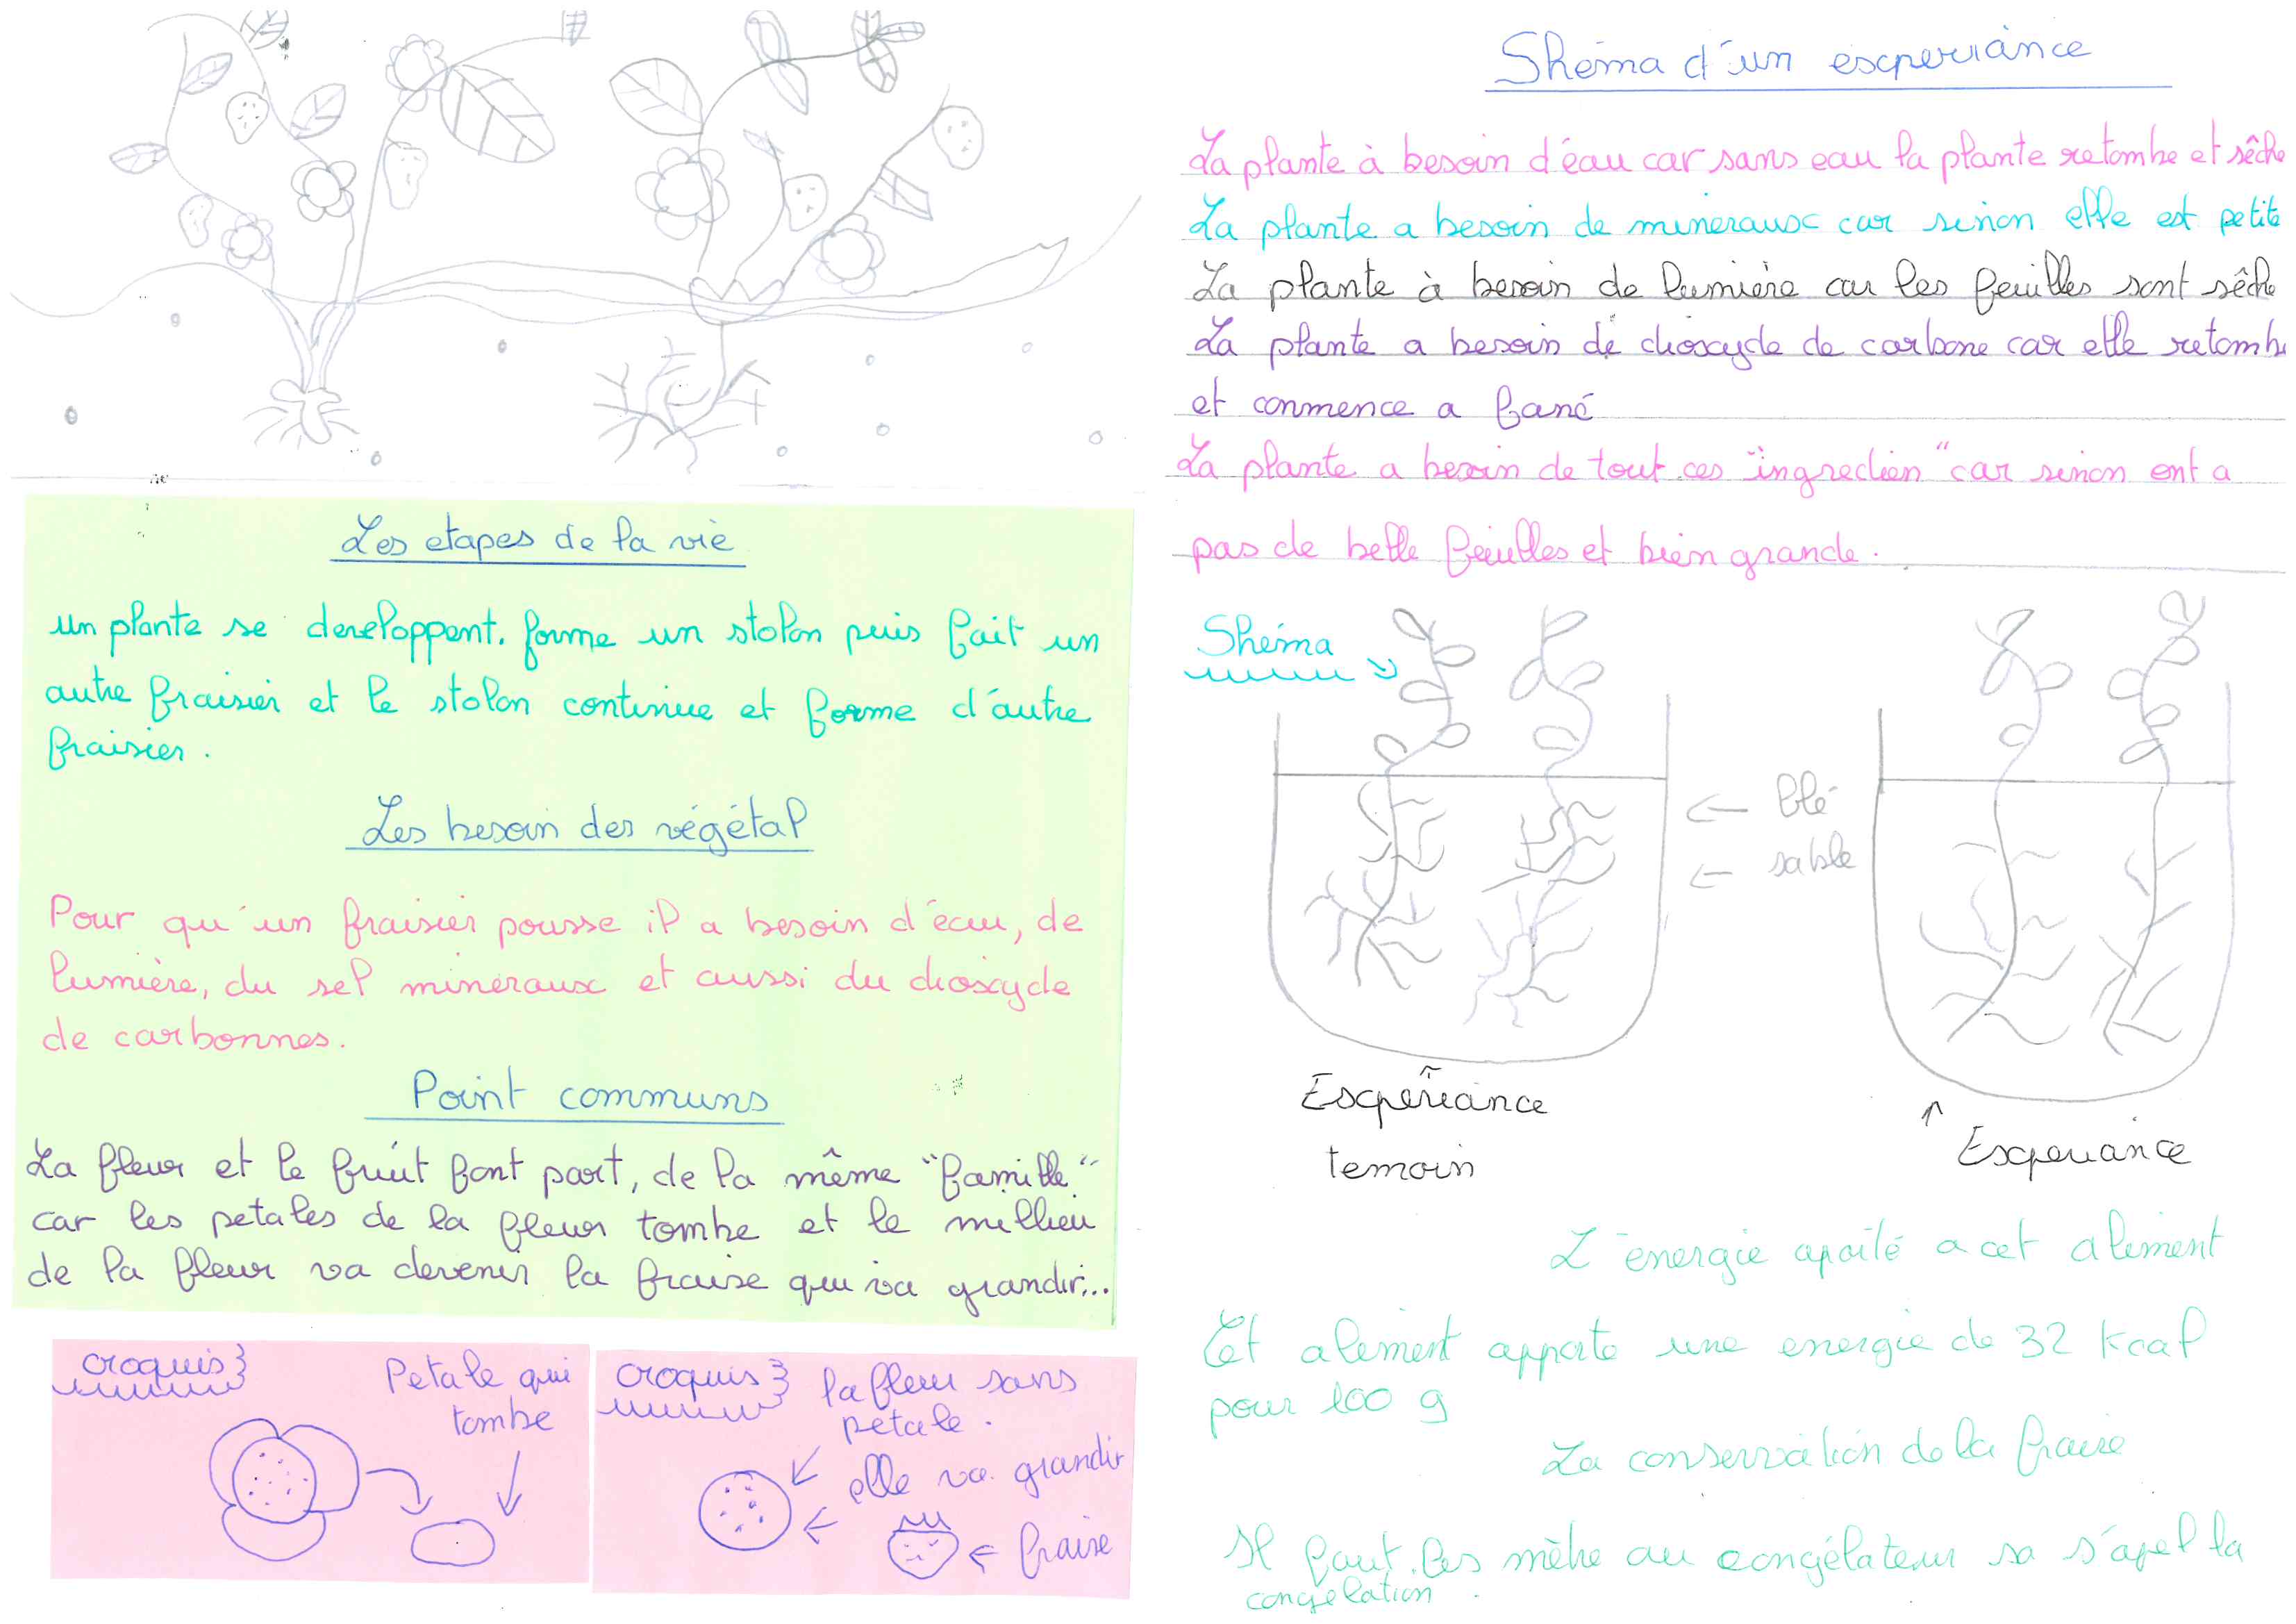 Les etapes de la vie
un plante se developpent. forme un stolon puis fait un
autre fraisier et le stolon continue et forme d'autre
fraisier.
Les besoin des végétal
Pour qu'un fraisier pousse il a besoin d'eau, de
lumière, du sel mineraux et aussi du dioxyde
de carbonnes.
Point communs
La fleur et le fruit font part, de la même "famille"
car les petales de la fleur tombe et le millieu
de la fleur va devenir la fraise qui va grandir...
croquis
Petale qui
tombe
croquis
la fleur sans
petale.
elle va grandir
fraise
Shéma d'un experiance
La plante à besoin d'eau car sans eau la plante retombe et sêche
La plante a besoin de mineraux car sinon elle est petite
La plante à besoin de lumière car les feuilles sont sêche
La plante a besoin de dioxyde de carbone car elle retombe
et conmence a fané
La plante a besoin de tout ces "ingredien" car sinon ont a
pas de belle feuilles et bien grande.
Shéma
blé
sable
Experiance
temoin
Experiance
L'énergie apoité a cet aliment
Cet aliment apporte une energie de 32 kcal
pour 100 g
La conservation de la fraise
Il faut les mètre au congélateur sa s'apel la
congelation.